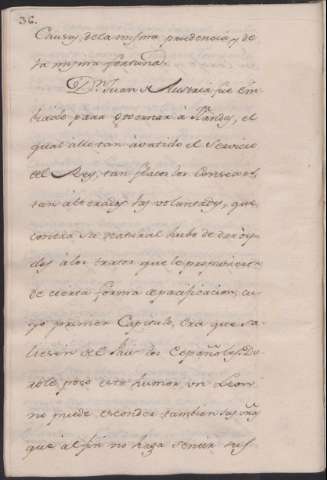 36.
Causas, de la misma prudencia, y de
la misma fortuna.
Dn. Juan de Austria fue em
biado para governar à Flandes, el
qual allè tan abatido el Servicio
del Rey, tan flacos los Consejos,
tan alterados las voluntades, que
contra su natural hubo de dar oy-
dos à los tratos que le proponian
de cierta forma de pacificacion, cu
yo primer Capitulo, Era que sa-
liesen del Pais los Españoles. Du
role poco este humor un Leon
no puede esconder tambien sus uñas
que al fin no haga sentir sus